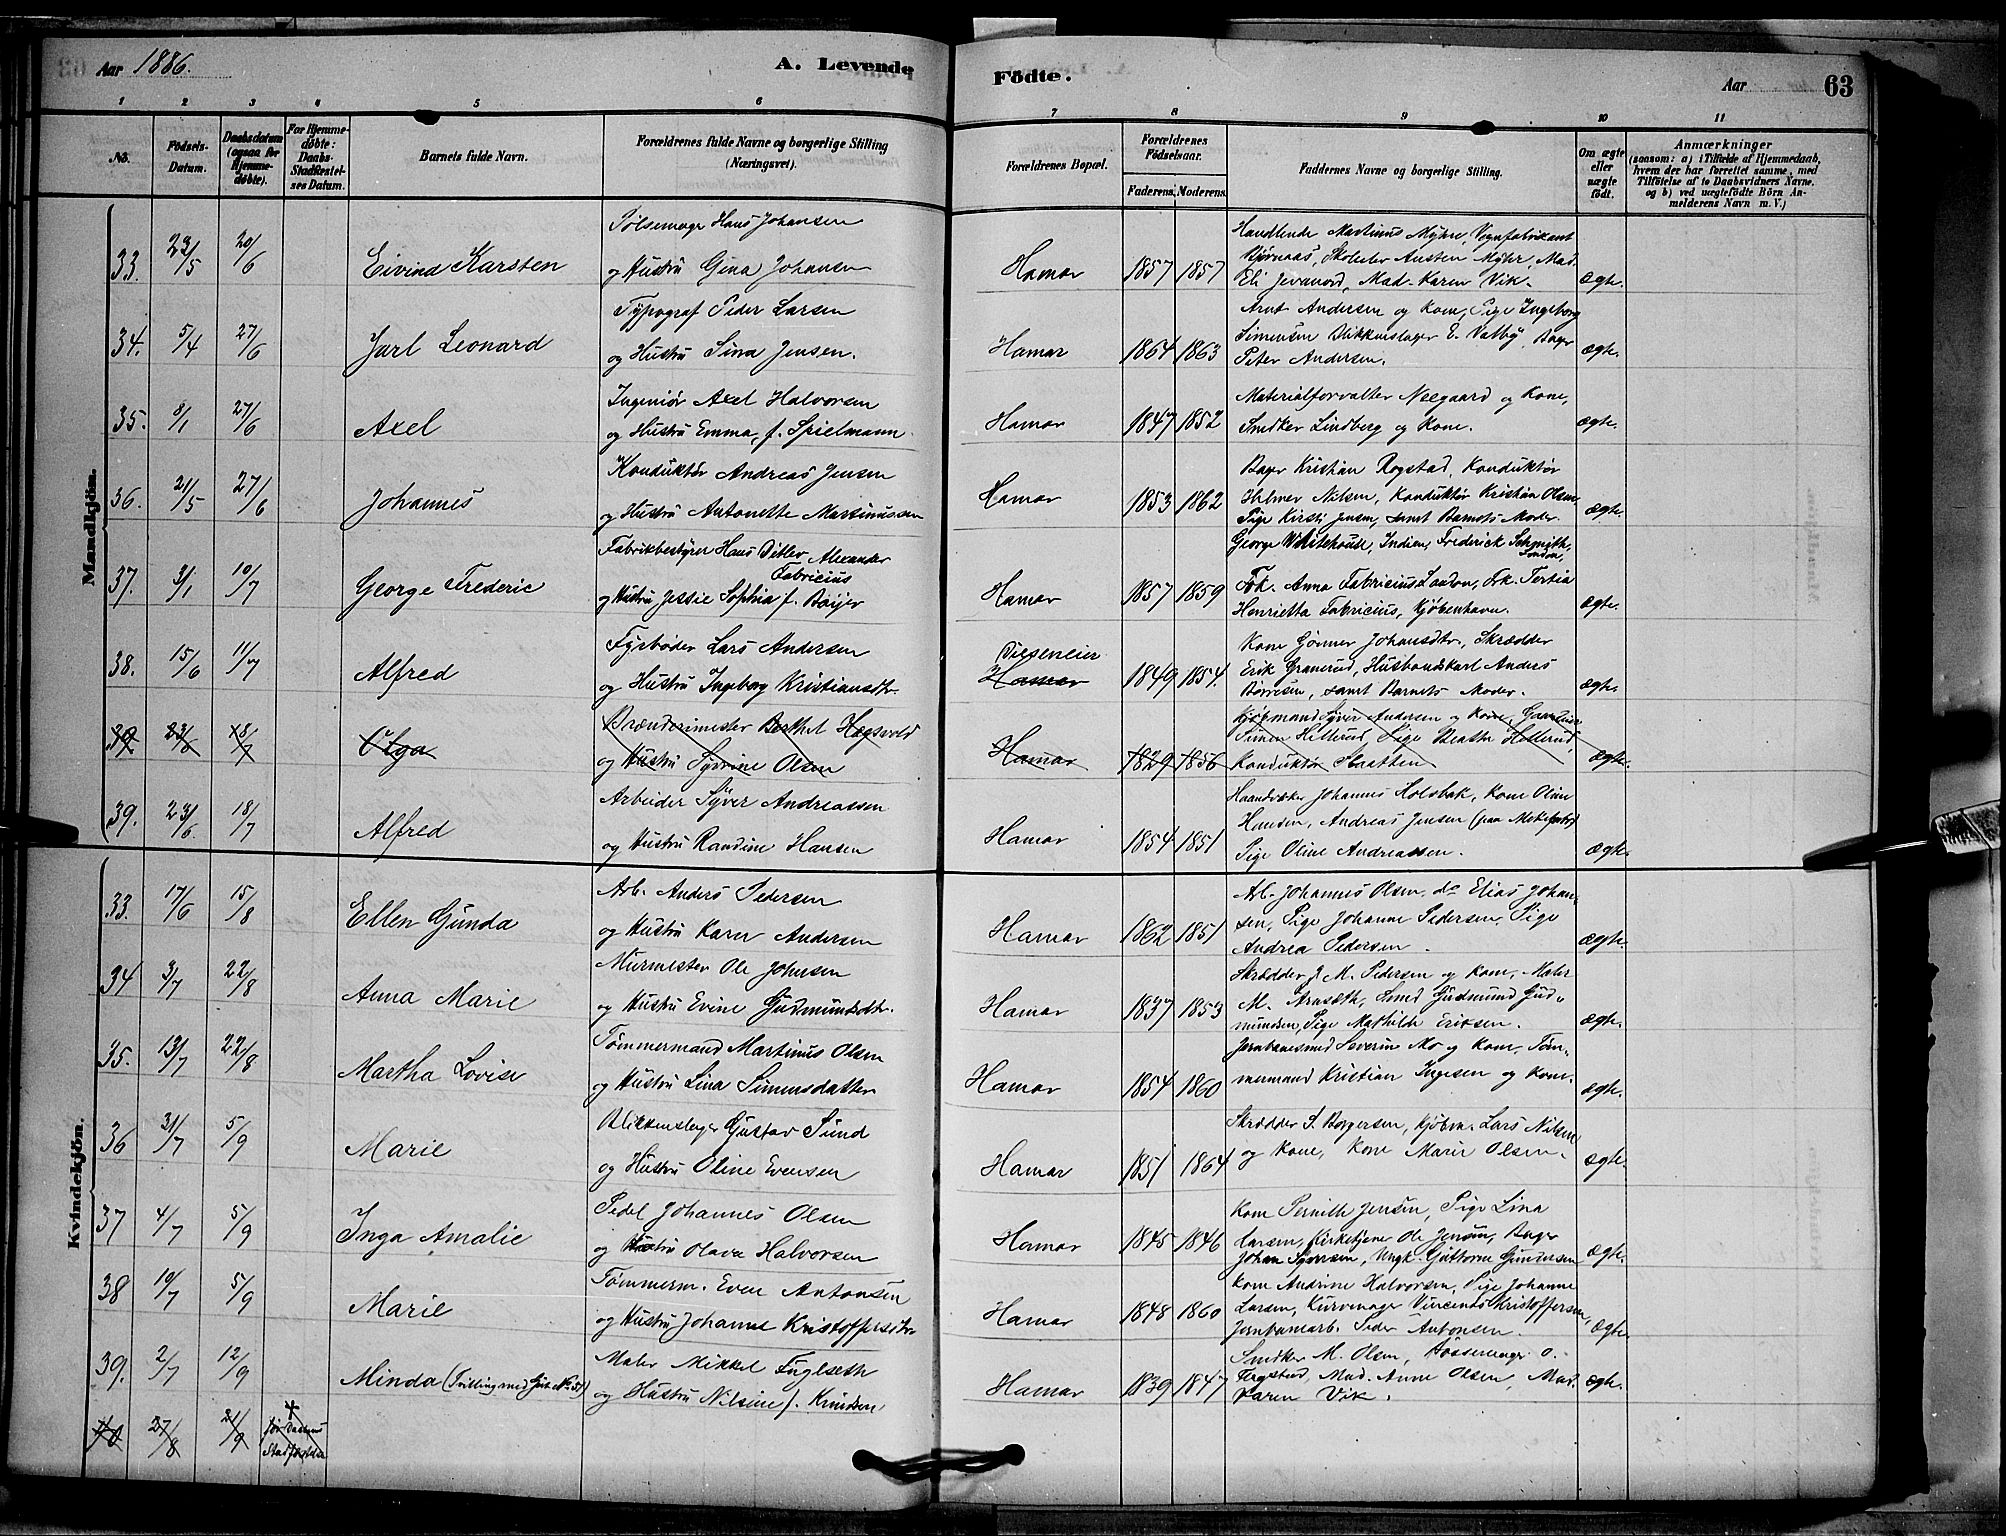 Aar 1886.
A. Levende
Födte.
Aar 63
1 2 3 4 5 6 7 8 9 10 11
No.
Födsels-Datum.
Daabsdatum (ogsaa for Hjemmedöbte).
For Hjemmedöbte: Daabs-Stadfæstelses Datum.
Barnets fulde Navn.
Forældrenes fulde Navne og borgerlige Stilling (Næringsvei).
Forældrenes Bopæl.
Forældrenes Födselsaar.
Faderens. Moderens.
Faddernes Navne og borgerlige Stilling.
Om ægte eller uægte født.
Anmærkninger
(saasom: a) i Tilfælde af Hjemmedaab, hvem der har forrettet samme, med Tilföielse af to Daabsvidners Navne, og b) ved uægtefödte Börn Anmelderens Navn m. V.)
Mandkjön.
Pølsemager Hans Johansen
33. 23/5 20/6 Eivind Karsten og Hustru Gina Johansen Hamar 1857 1857
Handlende Martinus Myhre, Vognfabrikant
Bjørnaas, Skoelev Austen Myhr, Mad.
Eli Jevanord, Mad. Karen Vik. Ægte.
Typograf Peder Larsen
34. 5/4 27/6 Jarl Leonard og Hustru Sina Jensen. Hamar 1864 1863
Arnt Andersen og Kone, Pige Ingeborg
Simensen Blikkenslager E. Valby, Bager
Peter Andersen. Ægte.
Ingeniør Axel Halvorsen
35. 8/1 27/6 Axel og Hustru Emma, f. Spielmann Hamar 1847 1852
Materialforvalter Neegaard og Kone,
Snedker Lindberg og Kone. Ægte.
Konduktør Andreas Jensen
36. 21/5 27/6 Johannes og Hustru Antonette Martinussen Hamar 1853 1862
Bager Kristian Rogstad, Konduktør
Helmer Nilsen, Konduktør Kristian Olsen
Pige Kirsti Jensen, samt Barnets Moder. Ægte.
Fabrikbestyrer Hans Ditlev Alexander
Fabricius
37. 3/1 10/7 George Frederic og Hustru Jessie Sophia f. Boijer Hamar 1857 1859
George Whitehouse, Indien, Frederick Schmith, London,
Frk. Anna Fabricius London, Frk. Tertia
Henrietta Fabricius, Kjøbenhavn. Ægte.
Fyrbøder Lars Andersen
38. 15/6 11/7 Alfred og Hustru Ingeborg Kristiansdtr. Dieseneier Hamar 1849 1854.
Kone Gørner Johansdtr, Skrædder
Erik Granerud, Husbondskarl Anders
Børresen, samt Barnets Moder. Ægte.
Brænderimester Berthel Hegsvold
39 23/6 18/7 Olga og Hustru Syverine Olsen Hamar 1829 1856
Kjøpmand Syver Andersen og Kone, Gaardeier
Simen Hellerud Pige Beathe Hellerud,
Konduktør Staatten Ægte.
Arbeider Syver Andreassen
39. 23/6 18/7 Alfred og Hustru Randine Hansen Hamar 1854 1851
Haandværker Johannes Holsbak, Kone Oline
Hansen, Andreas Jensen
Pige Oline Andreassen. Ægte.
Kvindekjön.
Arb. Anders Pedersen
33. 17/6 15/8 Ellen Gunda og Hustru Karen Andersen Hamar 1862 1851
Arb. Johannes Olsen, do Elias Johan-
sen, Pige Johanne Pedersen, Pige
Andrea Pedersen. Ægte.
Murmester Ole Johnsen
34 3/7 22/8 Anna Marie og Hustru Evine Gudmundsdtr. Hamar 1837 1853
Skrædder J. M. Pedersen og Kone, Maler
M. Arnseth, Smed Gudmund Gud-
mundsen, Pige Mathilde Eriksen. Ægte.
Tømmermand Martinus Olsen
35. 13/7 22/8 Martha Lovise og Hustru Lina Simensdatter Hamar 1854 1860
Jernbanesmed Severin Mo og Kone, Tøm-
mermand Kristian Ingesen og Kone. Ægte.
Blikkenslager Gustav Sund
36 31/7 5/9 Marie og Hustru Oline Evensen Hamar 1851 1864
Skrædder S. Borgersen, Kjøbm. Lars Nilsen
og Kone, Kone Marie Olsen. Ægte.
Pedel Johannes Olsen
37 4/7 5/9 Inga Amalie og Hustru Olava Halvorsen Hamar 1845 1846
Kone Pernille Jensen, Pige Lina
Larsen, Kirketjener Ole Jensen, Bager
Johan Syversen, Ungk. Guttorm Gundersen Ægte.
Tømmerm. Even Antonsen
38 10/7 5/9 Marie og Hustru Johanne Kristoffersdtr. Hamar 1848 1860
Kone Andrine Halvorsen, Pige Johanne
Larsen, Kurvemager Vincents Kristoffersen,
Jernbanearb. Peder Antonsen. Ægte.
Maler Mikkel Fuglseth
39. 2/7 12/9 Minda (Tvilling med Gut No 51) og Hustru Nilsine f. Knudsen Hamar 1839 1847
Snedker M. Olsen, Bøssemager O.
Fergstad, Mad. Anne Olsen, Mad.
Karen Vik. Ægte.
40 27/8 21/9 + før Daabens Stadfæstelse